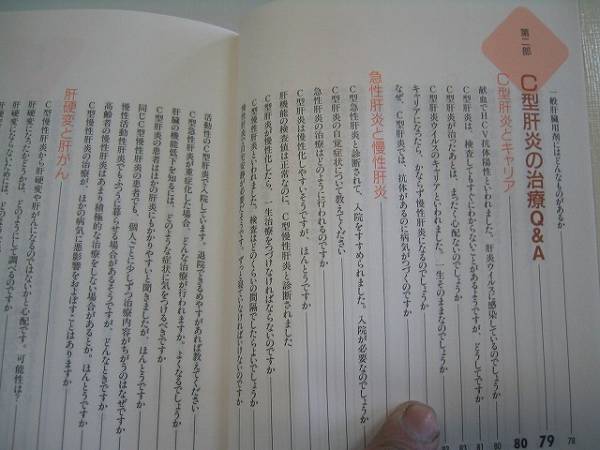 一般肝臓用剤にはどんなものがあるか
78
第二部
C型肝炎の治療Q&A
79
C型肝炎とキャリア
80
献血でHCV抗体陽性といわれました。肝炎ウイルスに感染しているのでしょうか
80
C型肝炎は、検査してもすぐにわからないことがあるようですが、どうしてですか
81
C型肝炎が治ったあとは、まったく心配ないのでしょうか
81
C型肝炎ウイルスのキャリアといわれました。一生そのままなのでしょうか
82
キャリアになったら、かならず慢性肝炎になるのでしょうか
なぜ、C型肝炎では、抗体があるのに病気がつづくのですか
急性肝炎と慢性肝炎
C型急性肝炎と診断されて、入院をすすめられました。入院が必要なのでしょうか
C型肝炎の自覚症状について教えてください
急性肝炎の治療はどのように行われるのですか
C型肝炎は慢性化しやすいそうですが、ほんとうですか
肝機能の検査値は正常なのに、C型慢性肝炎と診断されました
C型肝炎が慢性化したら、一生治療をつづけなければならないのですか
C型慢性肝炎といわれました。検査はどのくらいの間隔でしたらよいでしょうか
慢性肝炎で自宅安静が必要だそうです。ずっと寝ていなければいけないのですか
活動性のC型肝炎で入院しています。退院できるめやすがあれば教えてください
C型急性肝炎が重症化した場合、どんな治療が行われますか。よくなるでしょうか
肝臓の機能低下を知るには、どのような症状に気をつけるべきですか
C型肝炎の患者はほかの肝炎にもかかりやすいと聞きましたが、ほんとうですか
同じC型慢性肝炎の患者でも、個人ごとに少しずつ治療内容がちがうのはなぜですか
慢性活動性肝炎でもふつうに暮らせる場合があるそうですが、どんなときですか
高齢者の慢性肝炎はあまり積極的な治療をしない場合があるとか。ほんとうですか
C型慢性肝炎の治療が、ほかの病気に悪影響をおよぼすことはありますか
肝硬変と肝がん
C型慢性肝炎から肝硬変や肝がんになるのではないかと心配です。可能性は？
肝硬変になったかどうかは、どのようにして調べるのですか